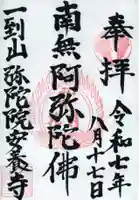 奉拝
令和七年
八月十七日
南無阿弥陀佛
一到山 弥陀院安養寺